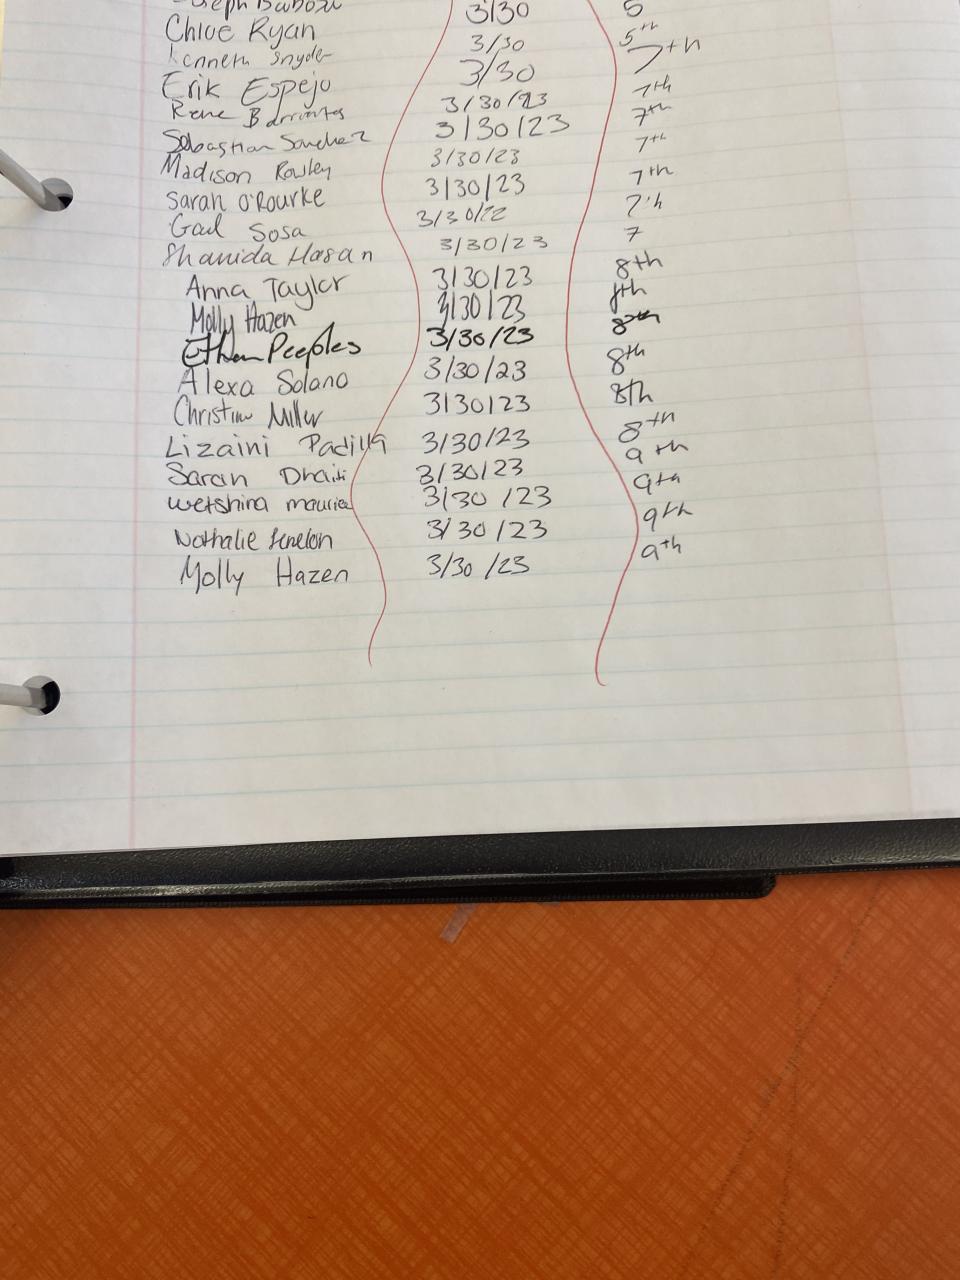 3/30 5
Chloe Ryan 3/30 5th
Kenneth Snyder 3/30 7th
Erik Espejo 3/30/23 7th
Rene Barrientes 3/30/23 7th
Sebastian Sanchez 3/30/23 7th
Madison Rowley 3/30/23 7th
Sarah O'Rourke 3/30/22 7th
Gail Sosa 3/30/23 7
Shanida Hasan 3/30/23 8th
Anna Taylor 3/30/23 8th
Molly Hazen 3/30/23 8th
Ethan Peeples 3/30/23 8th
Alexa Solano 3/30/23 8th
Christine Miller 3/30/23 8th
Lizaini Padilla 3/30/23 9th
Saran 3/30/23 9th
maurice 3/30/23 9th
Nathalie Fenelon 3/30/23 9th
Molly Hazen 3/30/23